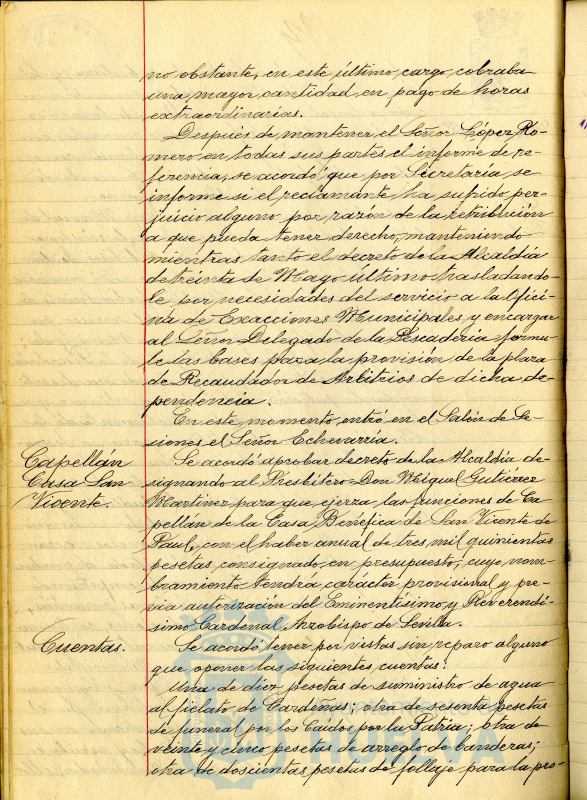 no obstante, en este último cargo, cobraba
una mayor cantidad en pago de horas
extraordinarias.
Después de mantener el Señor López Ro-
mero en todas sus partes el informe de re-
ferencia, se acordó que por Secretaría se
informe si el reclamante ha sufrido per-
juicio alguno por razón de la retribución
a que pueda tener derecho, manteniendo
mientras tanto el decreto de la Alcaldía
de treinta de Mayo último trasladando-
le por necesidades del servicio a la Ofici-
na de Exacciones Municipales y encargar
al Señor Delegado de la Pescadería formu-
le las bases para la provisión de la plaza
de Recaudador de Arbitrios de dicha de-
pendencia.
En este momento entró en el Salón de Se-
siones el Señor Echevarria.
Capellán
Casa San
Vicente.
Se acordó aprobar decreto de la Alcaldía de-
signando al Presbítero Don Miguel Gutiérrez
Martínez para que ejerza las funciones de Ca-
pellán de la Casa Benéfica de San Vicente de
Paul, con el haber anual de tres mil quinientas
pesetas consignado en presupuesto, cuyo nom-
bramiento tendrá carácter provisional y pre-
via autorización del Eminentísimo y Reverendí-
simo Cardenal Arzobispo de Sevilla.
Cuentas.
Se acordó tener por vistas sin reparo alguno
que oponer las siguientes cuentas:
Una de diez pesetas de suministro de agua
al fielato de Cardenas; otra de sesenta pesetas
de funeral por los Caídos por la Patria; otra de
veinte y cinco pesetas de arreglo de banderas;
otra de doscientas pesetas de follaje para la pro-